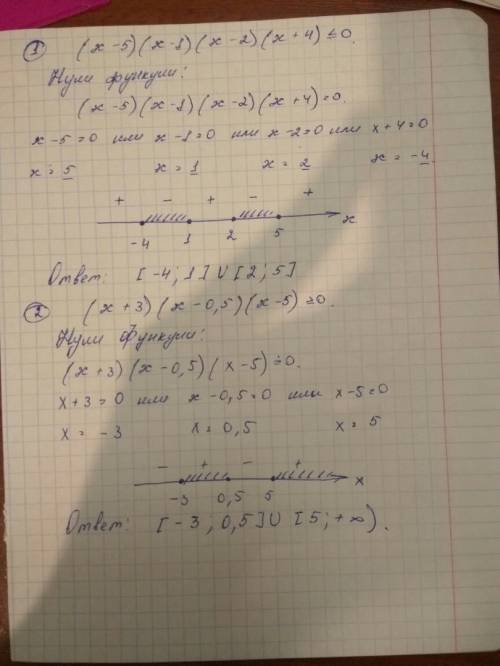 1 (x-5)(x-1)(x-2)(x+4)≤0.
Нули функции:
(x-5)(x-1)(x-2)(x+4)=0.
x-5=0 или x-1=0 или x-2=0 или x+4=0
x=5 x=1 x=2 x=-4.
+ - + - +
-4 1 2 5 x
Ответ: [-4;1]∪[2;5]
2 (x+3)(x-0,5)(x-5)≥0.
Нули функции:
(x+3)(x-0,5)(x-5)=0.
x+3=0 или x-0,5=0 или x-5=0
x=-3 x=0,5 x=5
- + - +
-3 0,5 5 x
Ответ: [-3;0,5]∪[5;+∞).